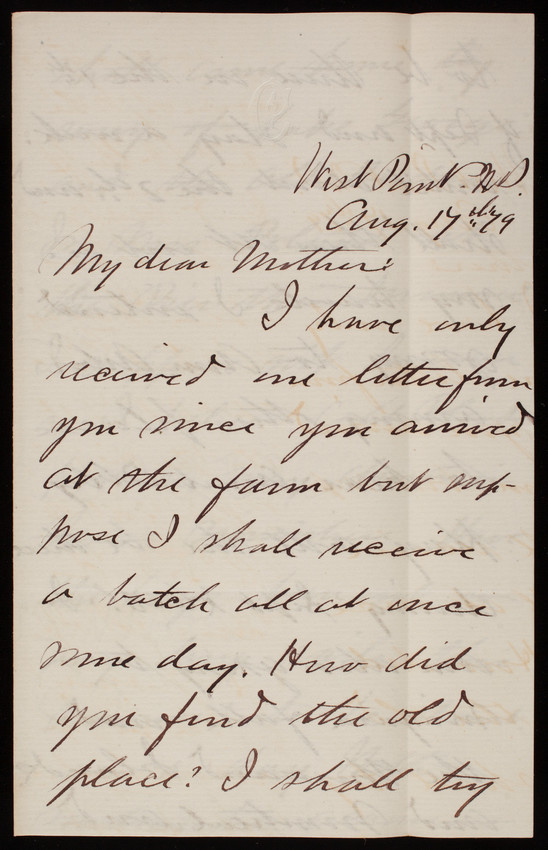 West Point. N.Y.
Aug. 17th 79
My dear Mother:
I have only
received one letter from
you since you arrived
at the farm but sup-
pose I shall receive
a batch all at once
some day. How did
you find the old
place? I shall try